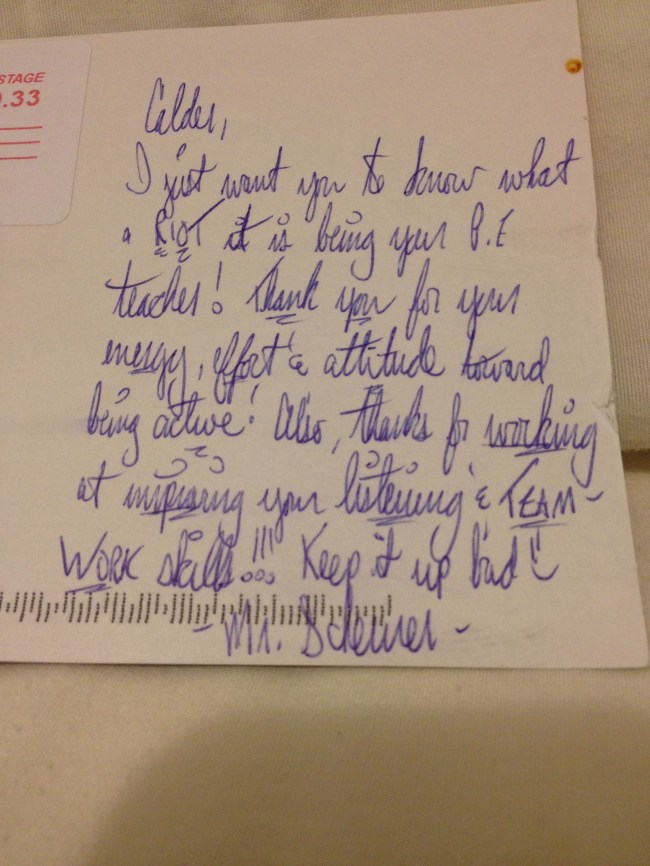 STAGE
.33
Calder,
I just want you to know what
a RIOT it is being your P.E
teacher! Thank you for your
energy, effort & attitude toward
being active! Also, thanks for working
at improving your listening & TEAM-
WORK skills!!! Keep it up bud!
- Mr.